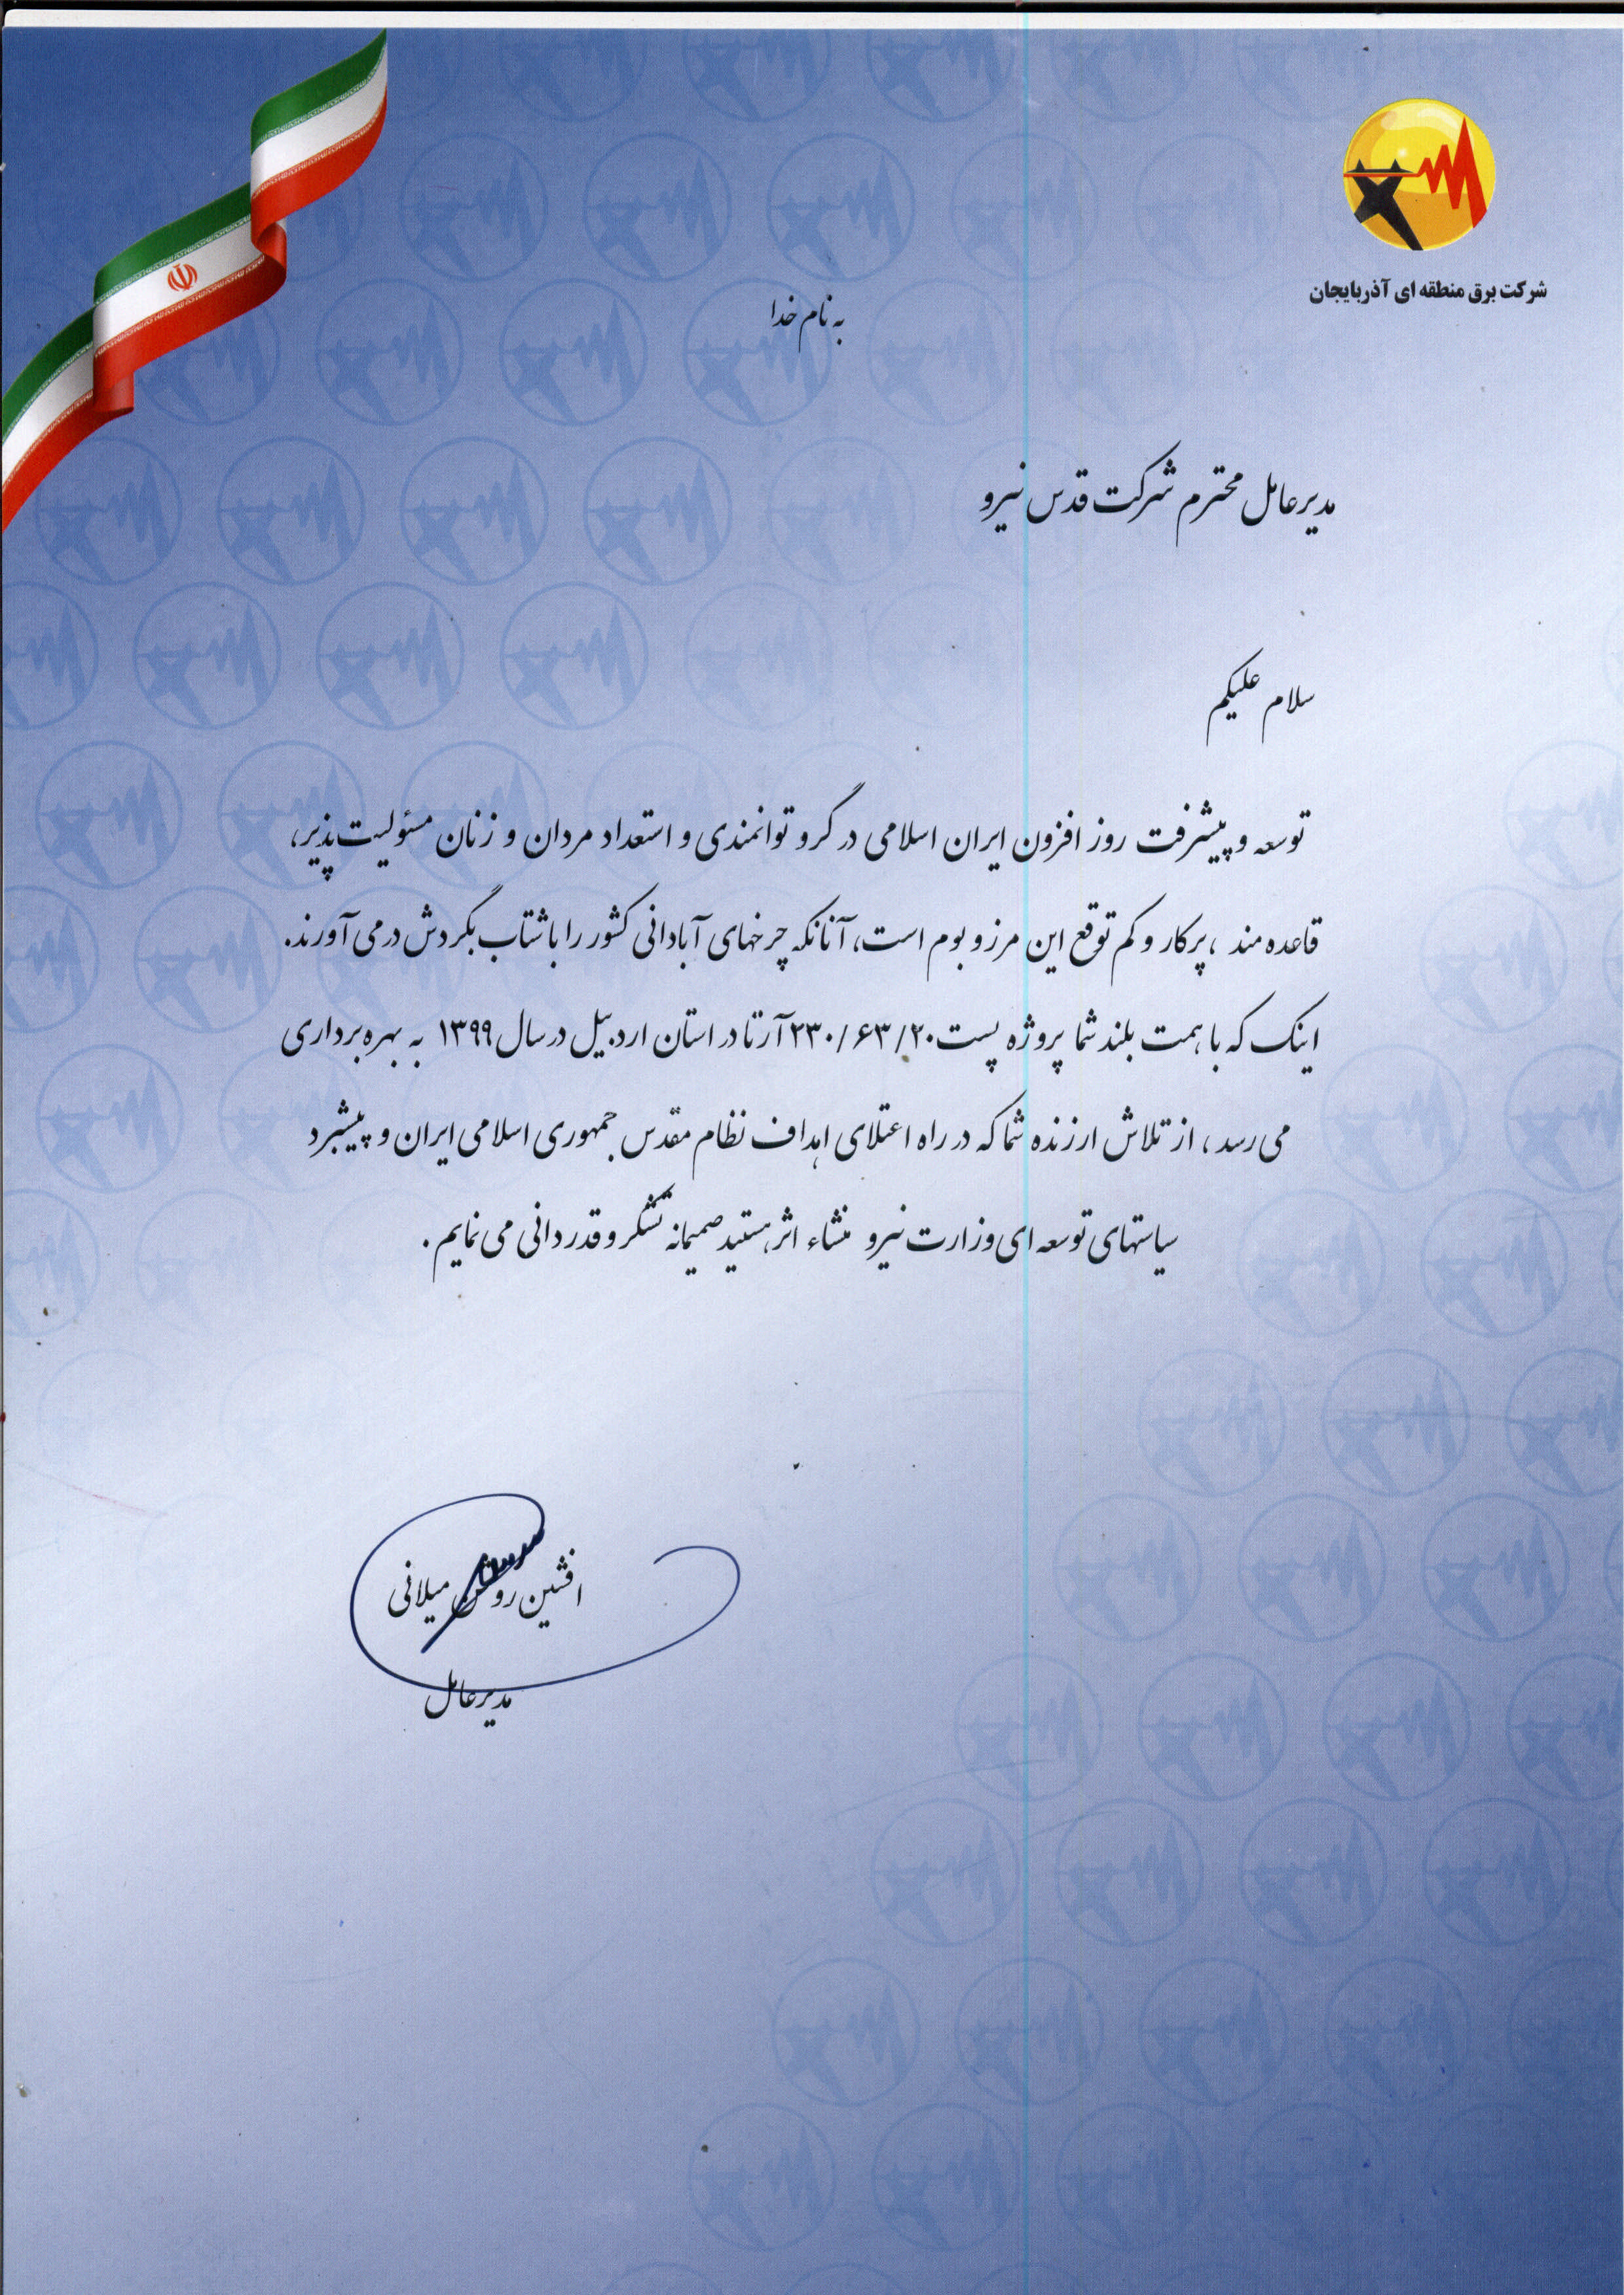 شرکت برق منطقه ای آذربایجان
به نام خدا
مدیرعامل محترم شرکت قدس نیرو
سلام علیکم
توسعه و پیشرفت روز افزون ایران اسلامی در گرو توانمندی و استعداد مردان و زنان مسئولیت پذیر،
قاعده مند ، پرکار و کم توقع این مرز و بوم است، آنانکه چرخهای آبادانی کشور را با شتاب بگردش درمی آورند.
اینک که با همت بلند شما پروژه پست ۲۳۰/۶۳/۲۰ آرتا در استان اردبیل در سال ۱۳۹۹ به بهره برداری
می رسد ، از تلاش ارزنده شما که در راه اعتلای اهداف نظام مقدس جمهوری اسلامی ایران و پیشبرد
سیاستهای توسعه ای وزارت نیرو منشاء اثر هستید صمیمانه تشکر و قدردانی می نمایم .
افشین روشن میلانی
مدیرعامل